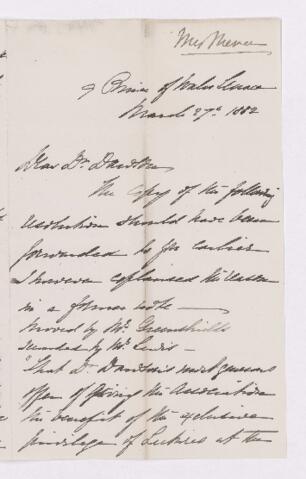 9 Prince of Wales Terrace
March 27th 1882
Dear Dr. Dawson
The copy of the following
resolution should have been
forwarded to you earlier
I however explained the reason
in a former note —
Moved by Mrs Greenshields
seconded by Mrs Lewis —
"That Dr Dawson's most generous
offer of giving the Association
the benefit of the exclusive
privilege of Lectures at the